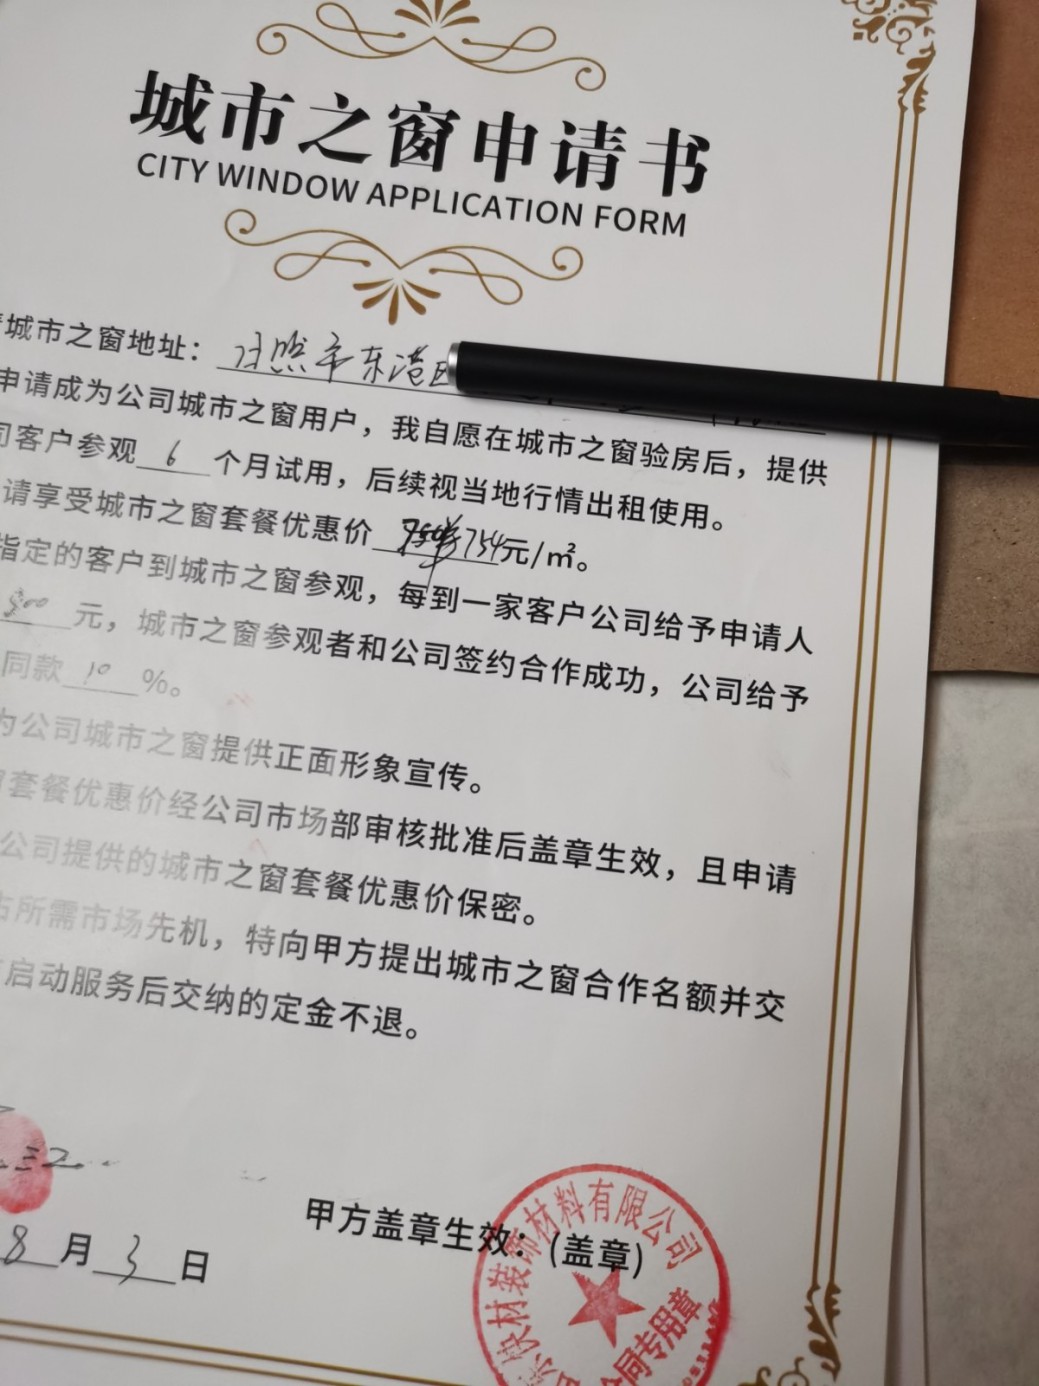 城市之窗申请书
CITY WINDOW APPLICATION FORM
城市之窗地址：日照市东港区
申请成为公司城市之窗用户，我自愿在城市之窗验房后，提供
司客户参观 6 个月试用，后续视当地行情出租使用。
请享受城市之窗套餐优惠价 754元/㎡。
指定的客户到城市之窗参观，每到一家客户公司给予申请人
500 元，城市之窗参观者和公司签约合作成功，公司给予
同款 10 %。
为公司城市之窗提供正面形象宣传。
窗套餐优惠价经公司市场部审核批准后盖章生效，且申请
公司提供的城市之窗套餐优惠价保密。
占所需市场先机，特向甲方提出城市之窗合作名额并交
启动服务后交纳的定金不退。
甲方盖章生效：(盖章)
8 月 3 日
快材装饰材料有限公司
合同专用章